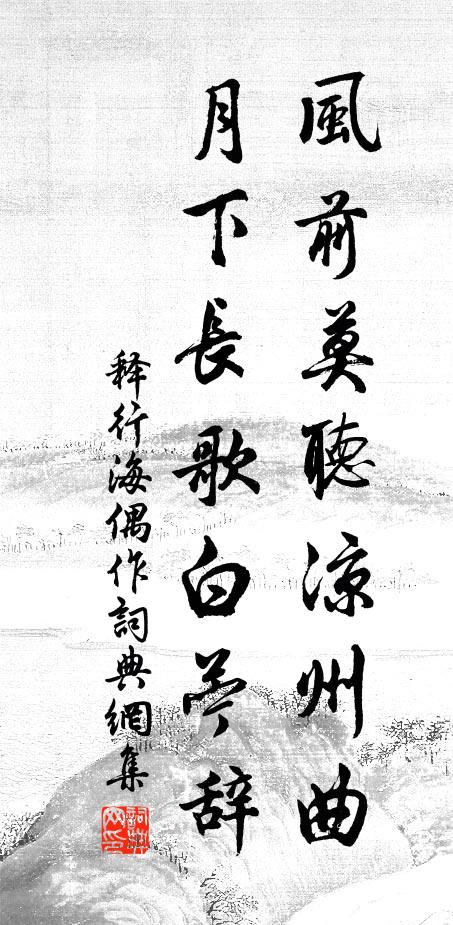 風前莫聽涼州曲
月下長歌白苧辞
释行海偶作詞典網集